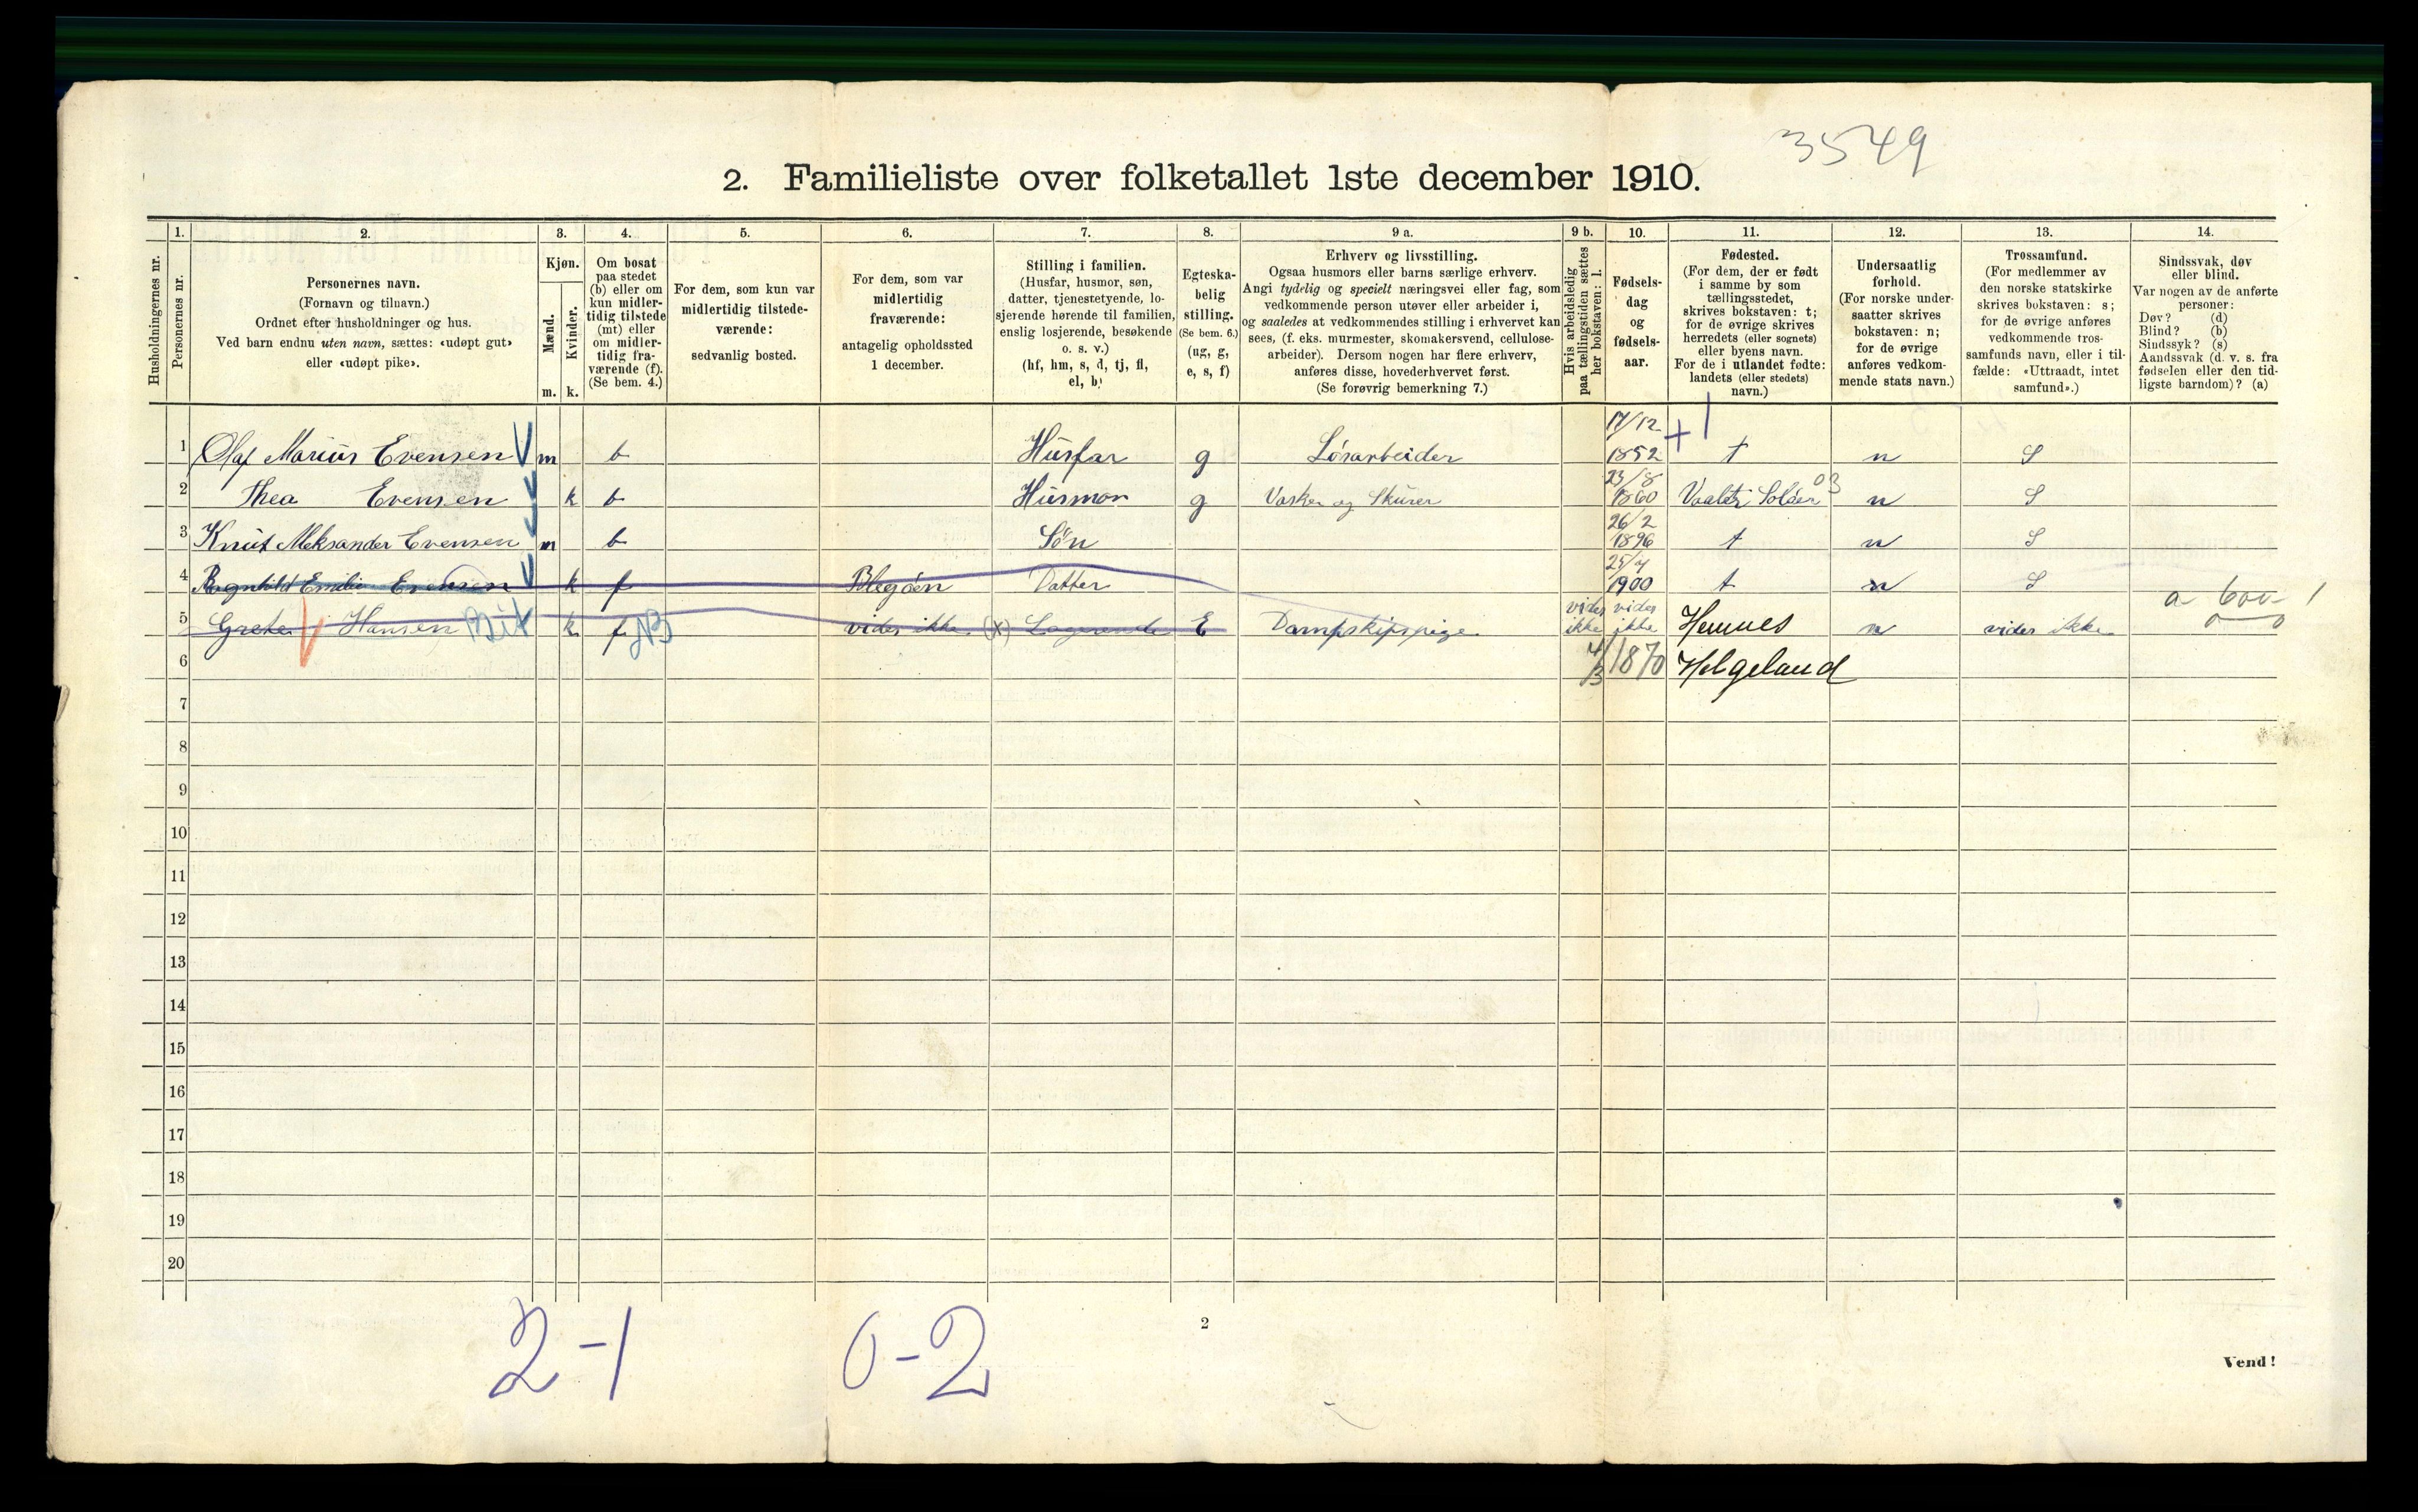 3549
2. Familieliste over folketallet 1ste december 1910.
Husholdningernes nr.
1.
Personernes nr.
2.
Personernes navn.
(Fornavn og tilnavn.)
Ordnet efter husholdninger og hus.
Ved barn endnu uten navn, sættes: «udøpt gut»
eller «udøpt pike».
3.
Kjøn.
Mænd.
Kvinder.
m. k.
4.
Om bosat
paa stedet
(b) eller om
kun midler-
tidig tilstede
(mt) eller
om midler-
tidig fra-
værende (f).
(Se bem. 4.)
5.
For dem, som kun var
midlertidig tilstede-
værende:
sedvanlig bosted.
6.
For dem, som var
midlertidig
fraværende:
antagelig opholdssted
1 december.
7.
Stilling i familien.
(Husfar, husmor, søn,
datter, tjenestetyende, lo-
sjerende hørende til familien,
enslig losjerende, besøkende
o. s. v.)
(hf, hm, s, d, tj, fl,
el, b)
8.
Egteska-
belig
stilling.
(Se bem. 6.)
(ug, g,
e, s, f)
9 a.
Erhverv og livsstilling.
Ogsaa husmors eller barns særlige erhverv.
Angi tydelig og specielt næringsvei eller fag, som
vedkommende person utøver eller arbeider i,
og saaledes at vedkommendes stilling i erhvervet kan
sees, (f. eks. murmester, skomakersvend, cellulose-
arbeider). Dersom nogen har flere erhverv,
anføres disse, hovederhvervet først.
(Se forøvrig bemerkning 7.)
9 b.
Hvis arbeidsledig
paa tællingstiden sættes
her bokstaven: l.
10.
Fødsels-
dag
og
fødsels-
aar.
11.
Fødested.
(For dem, der er født
i samme by som
tællingsstedet,
skrives bokstaven: t;
for de øvrige skrives
herredets (eller sognets)
eller byens navn.
For de i utlandet fødte:
landets (eller stedets)
navn.)
12.
Undersaatlig
forhold.
(For norske under-
saatter skrives
bokstaven: n;
for de øvrige
anføres vedkom-
mende stats navn.)
13.
Trossamfund.
(For medlemmer av
den norske statskirke
skrives bokstaven: s;
for de øvrige anføres
vedkommende tros-
samfunds navn, eller i til-
fælde: «Uttraadt, intet
samfund».)
14.
Sindssvak, døv
eller blind.
Var nogen av de anførte
personer:
Døv? (d)
Blind? (b)
Sindssyk? (s)
Aandssvak (d. v. s. fra
fødselen eller den tid-
ligste barndom)? (a)
1 Olaf Marius Evensen m b Husfar g Løsarbeider 17/12 1852 t n S
2 Thea Evensen k b Husmor g Vasker og Skurer 23/8 1860 Vaaler Solør 03 n S
3 Knut Aleksander Evensen m b Søn 26/2 1896 t n S
4 Ragnhild Emilie Evensen k f Blegøen Datter 25/4 1900 t n S
5 Grete Hansen k f NB vides ikke (x) Logerende E Dampskipspige vides ikke vides ikke Hemnes n vides ikke
6 4/3 1870 Helgeland
7
8
9
10
11
12
13
14
15
16
17
18
19
20
2-1 0-2
2
Vend!